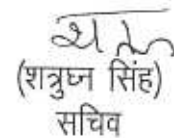 (शत्रुघ्न सिंह)
सचिव